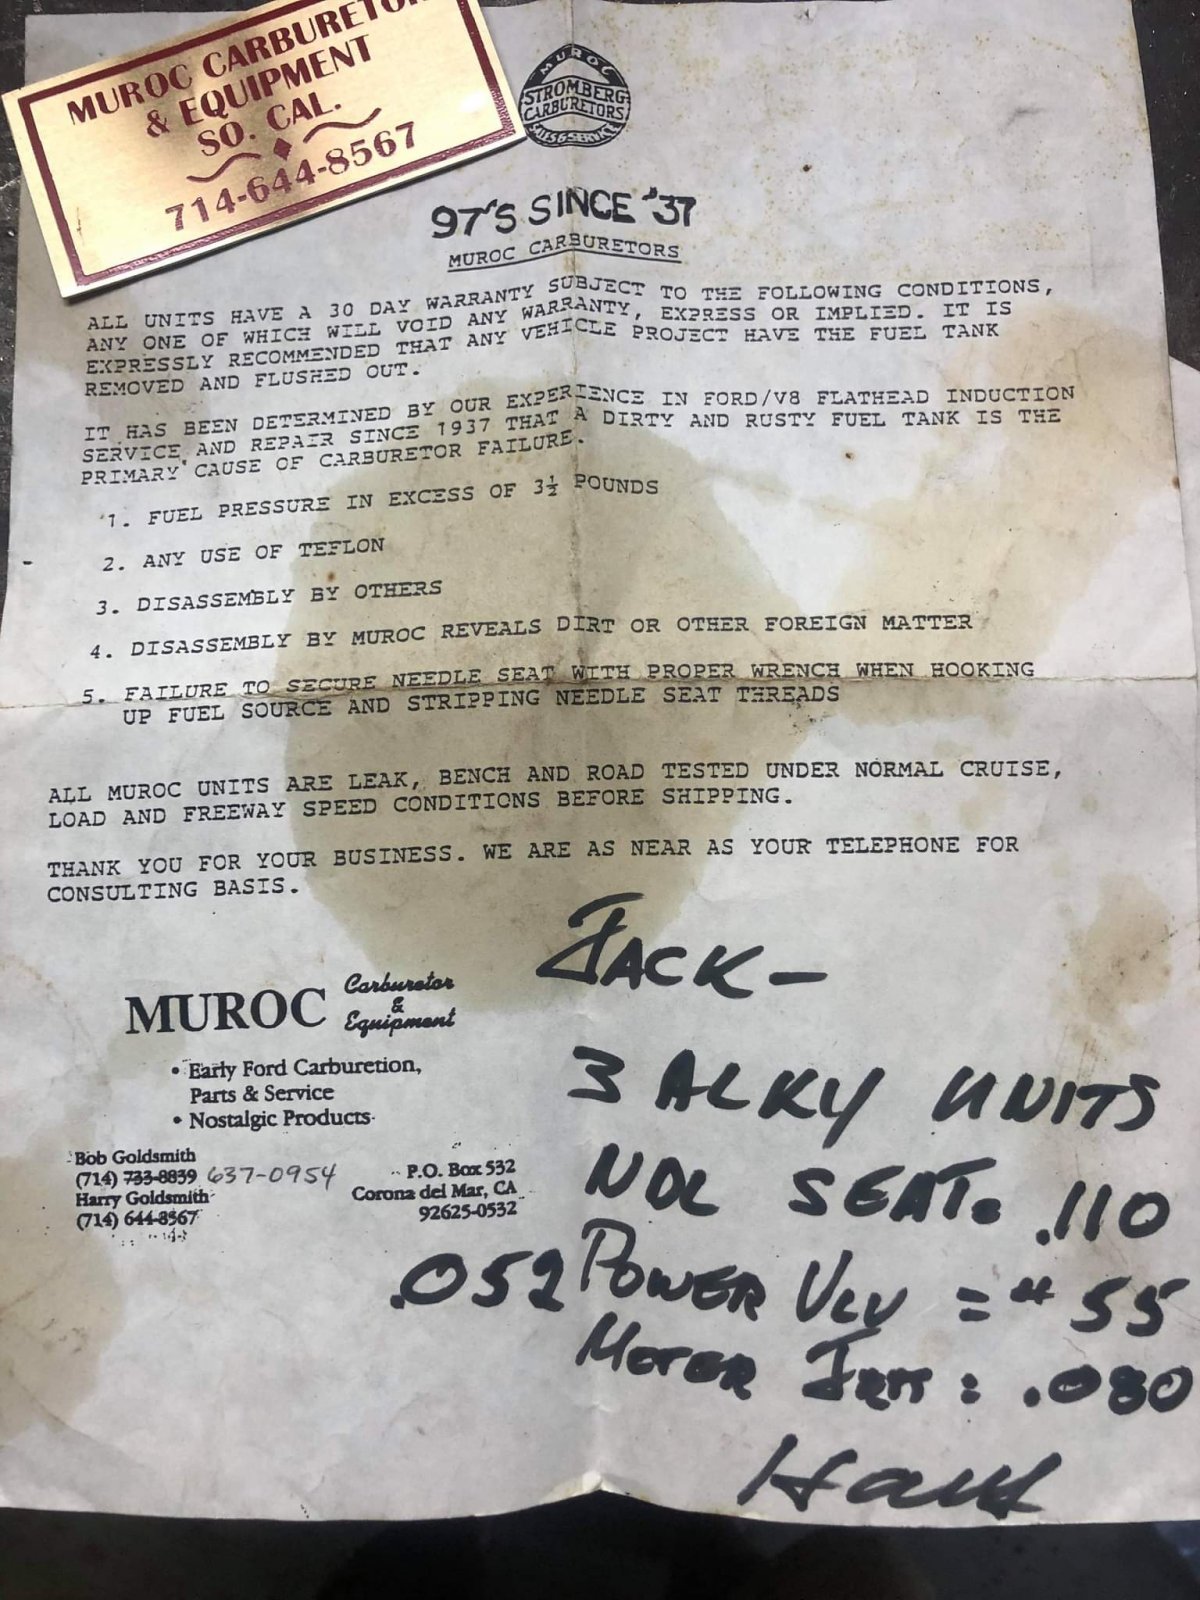 MUROC CARBURETOR
& EQUIPMENT
SO. CAL.
714-644-8567
MUROC
STROMBERG
CARBURETORS
SALES & SERVICE
97'S SINCE '37
MUROC CARBURETORS
ALL UNITS HAVE A 30 DAY WARRANTY SUBJECT TO THE FOLLOWING CONDITIONS,
ANY ONE OF WHICH WILL VOID ANY WARRANTY, EXPRESS OR IMPLIED. IT IS
EXPRESSLY RECOMMENDED THAT ANY VEHICLE PROJECT HAVE THE FUEL TANK
REMOVED AND FLUSHED OUT.
IT HAS BEEN DETERMINED BY OUR EXPERIENCE IN FORD/V8 FLATHEAD INDUCTION
SERVICE AND REPAIR SINCE 1937 THAT A DIRTY AND RUSTY FUEL TANK IS THE
PRIMARY CAUSE OF CARBURETOR FAILURE.
1. FUEL PRESSURE IN EXCESS OF 3½ POUNDS
2. ANY USE OF TEFLON
3. DISASSEMBLY BY OTHERS
4. DISASSEMBLY BY MUROC REVEALS DIRT OR OTHER FOREIGN MATTER
5. FAILURE TO SECURE NEEDLE SEAT WITH PROPER WRENCH WHEN HOOKING
UP FUEL SOURCE AND STRIPPING NEEDLE SEAT THREADS
ALL MUROC UNITS ARE LEAK, BENCH AND ROAD TESTED UNDER NORMAL CRUISE,
LOAD AND FREEWAY SPEED CONDITIONS BEFORE SHIPPING.
THANK YOU FOR YOUR BUSINESS. WE ARE AS NEAR AS YOUR TELEPHONE FOR
CONSULTING BASIS.
MUROC Carburetor & Equipment
• Early Ford Carburetion,
Parts & Service
• Nostalgic Products
Bob Goldsmith
(714) 733-8839 637-0954
Harry Goldsmith
(714) 644-8567
P.O. Box 532
Corona del Mar, CA
92625-0532
JACK-
3 ALKY UNITS
NDL SEAT= .110
.052 POWER VLV = #55
METER JETS = .080